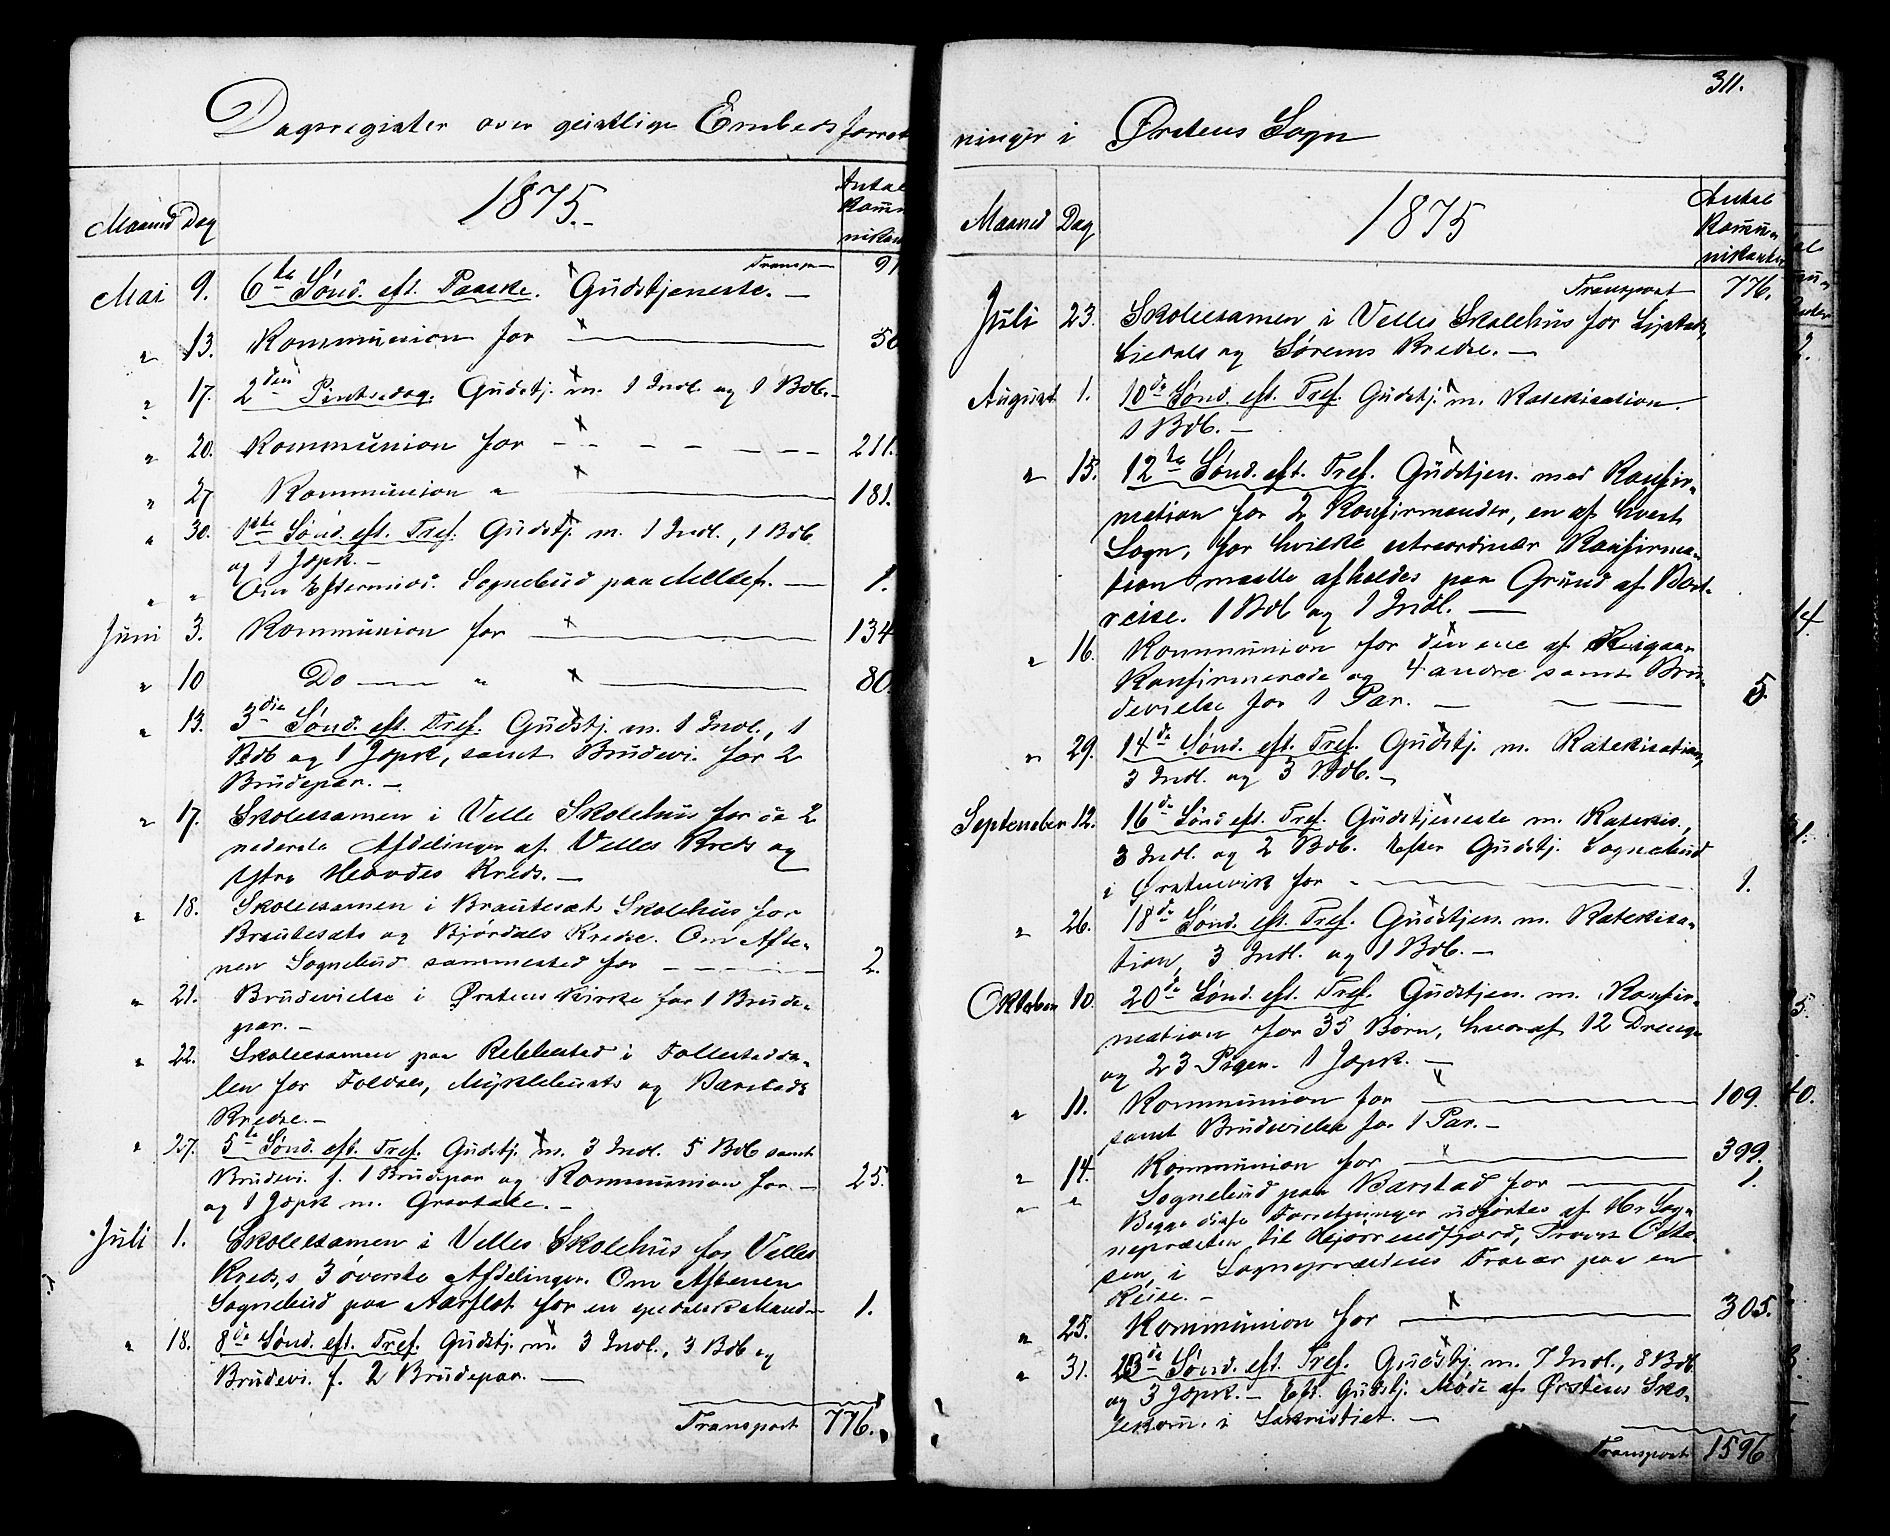 Dagsregister over geistlige Embedsforret
1875.-
Maaned Dag
Antal
Komu
nikan
Transp
91
Mai 9. 6te Sønd. eft. Paaske. Gudstjeneste. —
" 13. Kommunion for — 50
" 17. 2den Pintsedag. Gudstj. m. 1 Indl. og 1 Bdb.-
" 20. Kommunion for — 211.
" 27 Kommunion " — 181.
" 30. 1ste Sønd. eft. Tref. Gudstj. m. 1 Indl., 1 Bdb.
og 1 Jopk. -
" " Om Eftermid. Sognebud paa Mellef. — 1.
Juni 3. Kommunion for — 134
" 10 Do — " — 80.
" 13. 3die Sønd. eft. Tref. Gudstj. m. 1 Indl., 1
Bdb og 1 Jopk, samt Brudevi. for 2
Brudepar. -
" 17. Skoleexamen i Velle Skolehus for de 2
nederste Afdelinger af Velles Kreds og
Ytre Hovdes Kreds. —
" 18. Skoleexamen i Brautesæt Skolehus for
Brautesæts og Bjørdals Kredse. Om Afte-
nen Sognebud sammested for — 2.
" 21. Brudevielse i Ørstens Kirke for 1 Brude-
par. -
" 22. Skoleexamen paa Rebbestad i Follestadda-
len for Foldals, Myklebusts og Barstads
Kredse. -
" 27. 5te Sønd. eft. Tref. Gudstj. m. 3 Indl. 5 Bdb samt
Brudevi. f. 1 Brudepar og Kommunion for — 25.
og 1 Jopk m. Gravtale. -
Juli 1. Skoleexamen i Velles Skolehus for Velles
Kreds,s 3 øverste Afdelinger. Om Aftenen
Sognebud paa Aarflot for en spedalsk Mand — 1.
" 18. 8de Sønd. eft. Tref. Gudstj. m. 3 Indl., 3 Bdb og
Brudevi. f. 2 Brudepar. —
Transport 776.
311.
ninger i Ørstens Sogn
1875
Maaned Dag
Antal
Kommu-
nikanter
Transport 776.
Juli 23. Skoleexamen i Velles Skolehus for
og Sørems Kredse. —
August 1. 10de Sønd. eft. Tref. Gudstj. m. Katekisation.
1 Bdb. -
" 15. 12te Sønd. eft. Tref. Gudstjen. med Konfir-
mation for 2 Konfirmander, en af hvert
Sogn, for hvilke extraordinær Konfirma-
tion maatte afholdes paa Grund af Bort-
reise. 1 Bdb og 1 Indl. —
" 16. Kommunion for den ene af de igaar
Konfirmerede og 4 andre samt Bru-
devielse for 1 Par. — 5.
" 29. 14de Sønd. eft. Tref. Gudstj. m. Katekisation,
3 Indl. og 3 Bdb. -
September 12. 16de Sønd eft. Tref. Gudstjeneste m. Katekis.,
3 Indl. og 2 Bdb. Efter Gudstj. Sognebud
i Ørstenvik for — 1.
" 26. 18de Sønd. eft. Tref. Gudstjen. m. Katekisa-
tion, 3 Indl. og 1 Bdb. -
Oktober 10. 20de Sønd. eft. Tref. Gudstjen. m. Konfir-
mation for 35 Børn, hvoraf 12 Drenge
og 23 Piger. 1 Jopk. —
" 11. Kommunion for — 109.
samt Brudevielse for 1 Par. -
" 14. Kommunion for — 399.
" " Sognebud paa Barstad for — 1.
Begge disse Forretninger udførtes af Hr Sog-
nepræsten til Hjørrendfjord, Provst Otte-
sen, i Sognepræstens Fravær paa en
Reise. -
" 25. Kommunion for — 305.
" 31. 23de Sønd. eft. Tref. Gudstj. m. 7 Indl., 8 Bdb
og 3 Jopk. — Eft. Gudstj. Møde af Ørstens Sko-
lekom. i Sakristiet. —
Transport 1596